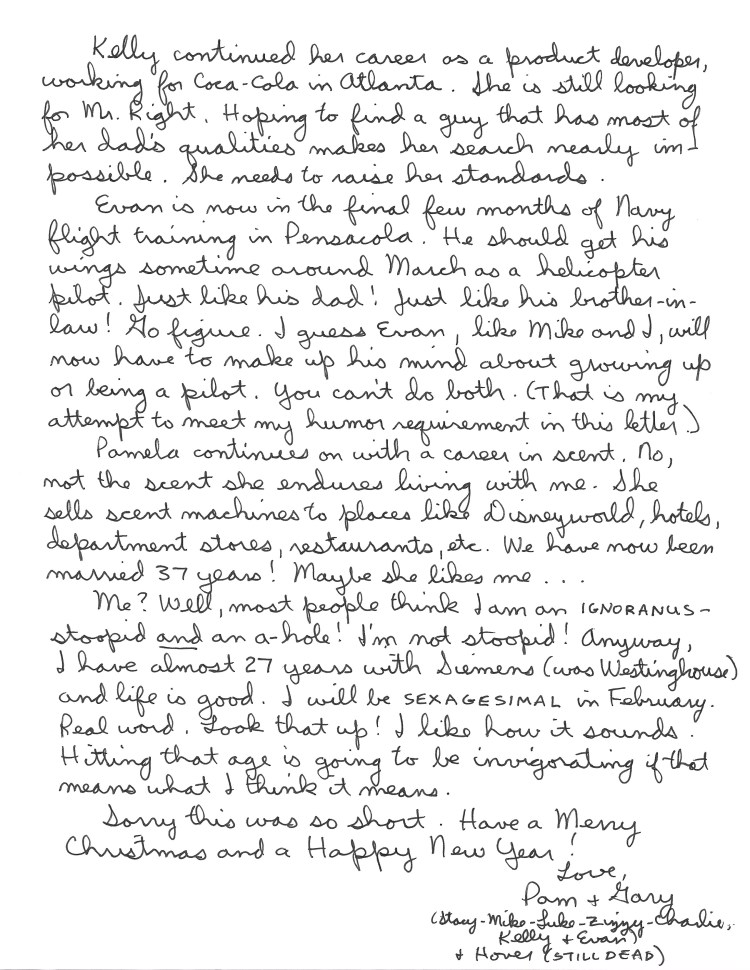 Kelly continued her career as a product developer,
working for Coca-Cola in Atlanta. She is still looking
for Mr. Right. Hoping to find a guy that has most of
her dad's qualities makes her search nearly im-
possible. She needs to raise her standards.
Evan is now in the final few months of Navy
flight training in Pensacola. He should get his
wings sometime around March as a helicopter
pilot. Just like his dad! Just like his brother-in-
law! Go figure. I guess Evan, like Mike and I, will
now have to make up his mind about growing up
or being a pilot. You can't do both. (That is my
attempt to meet my humor requirement in this letter.)
Pamela continues on with a career in scent. No,
not the scent she endures living with me. She
sells scent machines to places like Disneyworld, hotels,
department stores, restaurants, etc. We have now been
married 37 years! Maybe she likes me ...
Me? Well, most people think I am an IGNORANUS-
stoopid and an a-hole! I'm not stoopid! Anyway,
I have almost 27 years with Siemens (was Westinghouse)
and life is good. I will be SEXAGESIMAL in February.
Real word. Look that up! I like how it sounds.
Hitting that age is going to be invigorating if that
means what I think it means.
Sorry this was so short. Have a Merry
Christmas and a Happy New Year!
Love,
Pam + Gary
(Stacy-Mike-Luke-Zizzy-Charlie,
Kelly + Evan)
+ Hover (STILL DEAD)